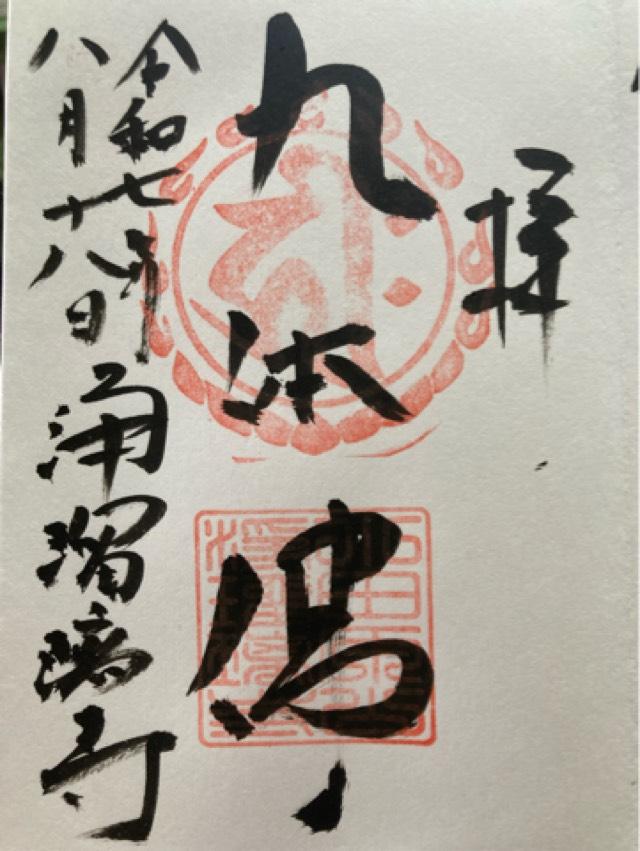 拝
九体佛
令和七年
八月十八日
浄瑠璃寺